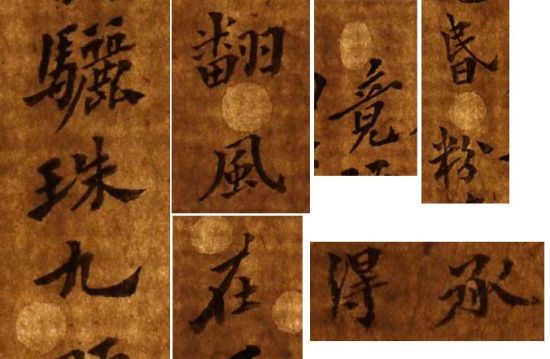 驪珠九
翻風
在
竟
昏粉
得承